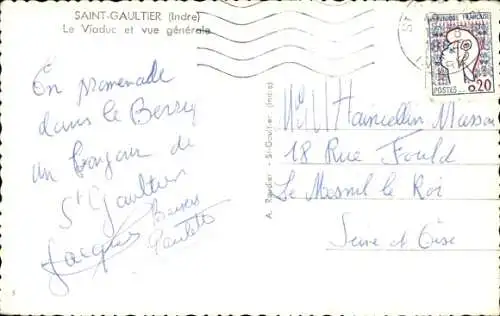 SAINT-GAULTIER (Indre)
Le Viaduc et vue générale
RÉPUBLIQUE FRANÇAISE
POSTES 0,20
En promenade
dans le Berry
un bonjour de
St Gaultier
Jacques Baisers
Paulette
A. Rardier - St-Gaultier (Indre)
Masson
18 Rue Fould
Le Mesnil le Roi
Seine et Oise